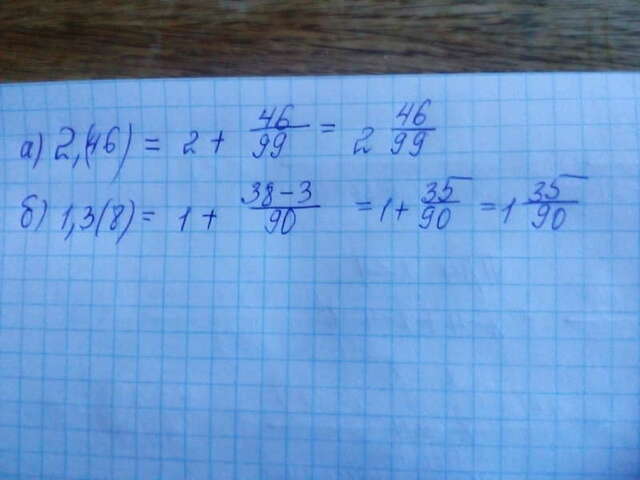 а) 2,(46) = 2 + 46/99 = 2 46/99
б) 1,3(8) = 1 + (38-3)/90 = 1 + 35/90 = 1 35/90